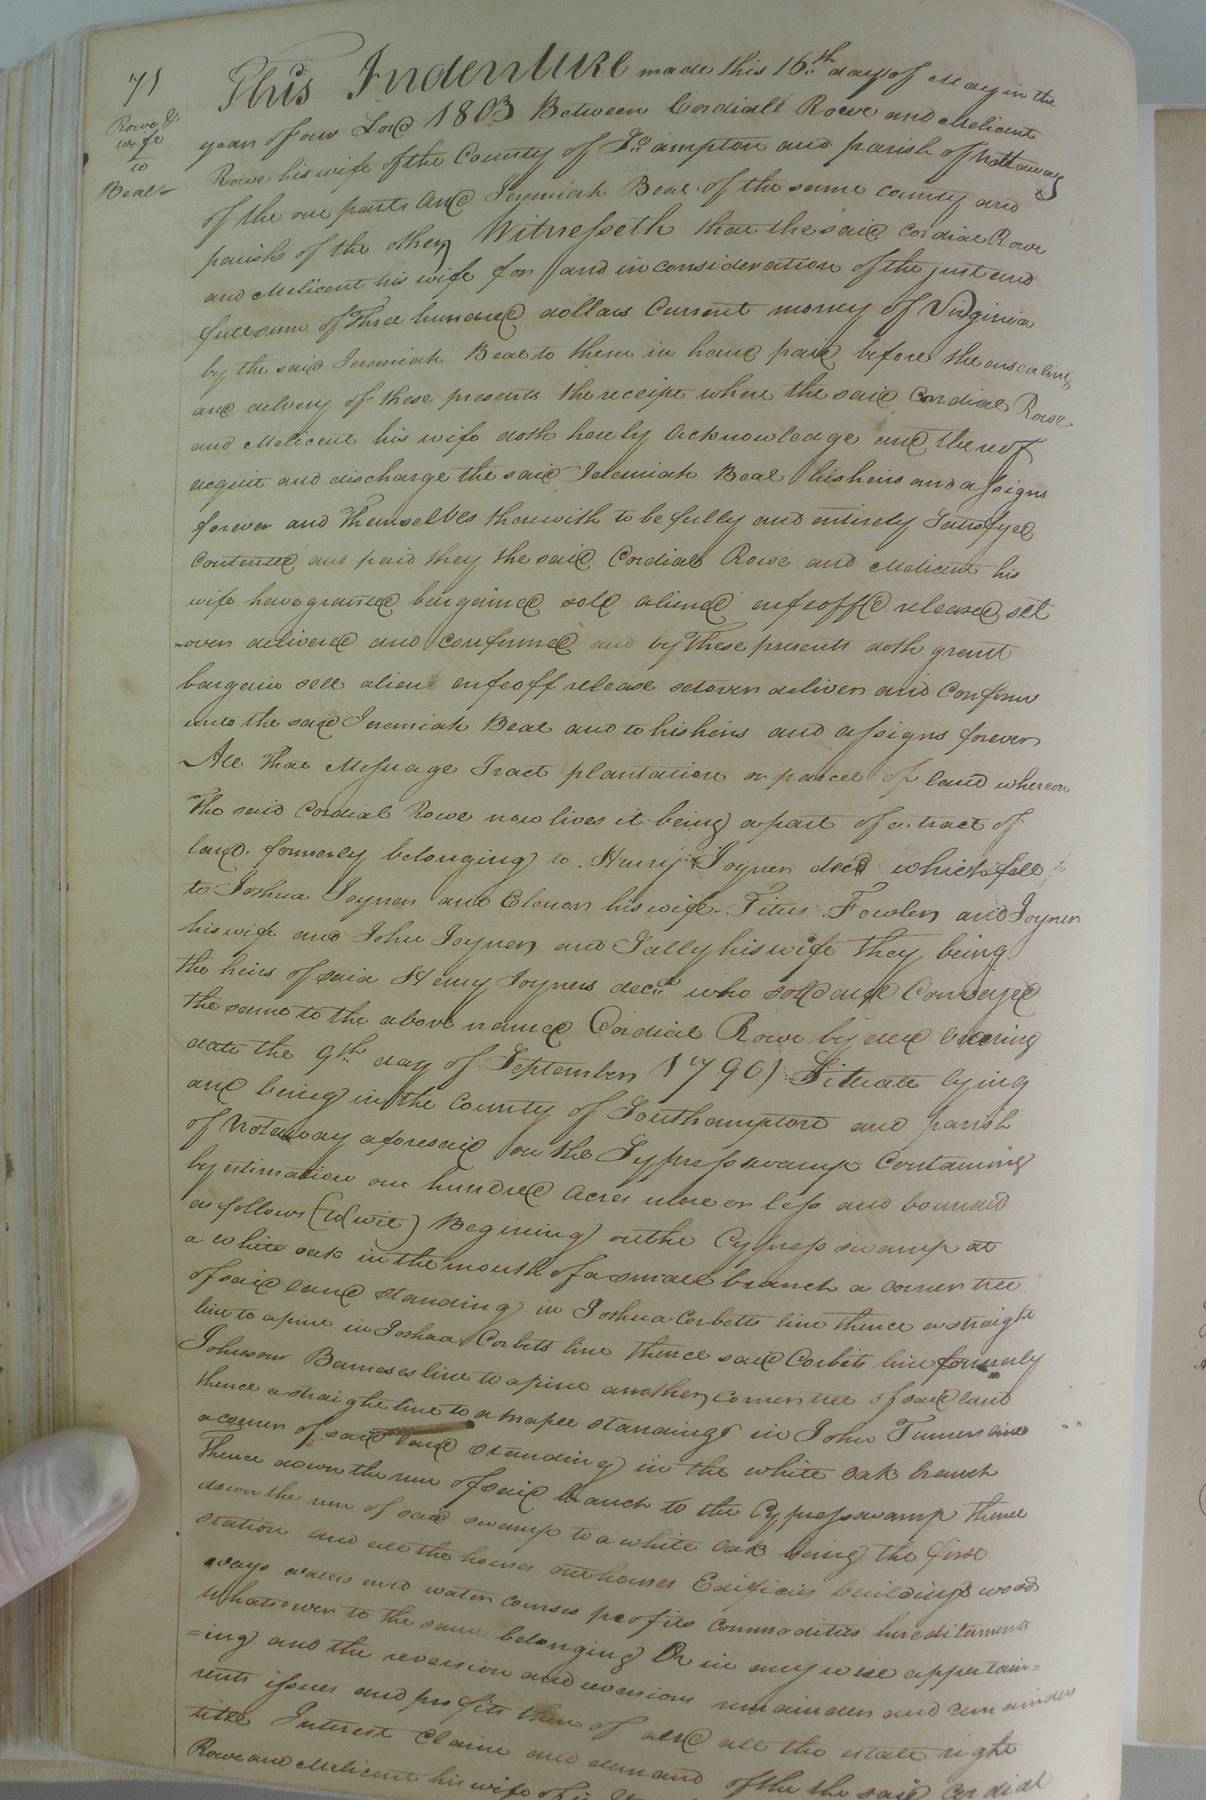 71
Rowe &
wife
to
Beal
This Indenture made this 16th day of May in the
year of our Lord 1803 Between Cordiall Rowe and Melicent
Rowe his wife of the County of So.ampton and parish of Nottaway
of the one part And Jeremiah Beal of the same county and
parish of the other Witnesseth that the said Cordial Rowe
and Melicent his wife for and in consideration of the just and
full sum of Three hundred dollars Current money of Virginia
by the said Jeremiah Beal to them in hand paid before the enscaling
and delivery of these presents the receipt where the said Cordial Rowe
and Melicent his wife doth hereby Acknowledge and thereof
acquit and discharge the said Jeremiah Beal his heirs and assigns
forever and Themselves therewith to be fully and entirely Satisfyed
Contented and paid they the said Cordial Rowe and Melicent his
wife have granted bargained sold aliened enfeoff'd released set
-over delivered and confirmed and by These presents doth grant
bargain sell alien enfeoff release setover deliver and Confirm
unto the said Jeremiah Beal and to his heirs and assigns forever
All that Messuage Tract plantation or parcel of land whereon
The said Cordial Rowe now lives it being a part of a tract of
land formerly belonging to Henry Joyner decd which fell
to Joshua Joyner and Elenor his wife Titus Fowler and Joyner
his wife and John Joyner and Sally his wife they being
the heirs of said Henry Joyners decd who sold and Conveyed
the same to the above named Cordial Rowe by deed bearing
date the 9th day of September 1790) Situate lying
and being in the County of Southampton and parish
of Notaway aforesaid on the Sypress swamp Containing
by estimation one hundred Acres more or less and bounded
as follows (to wit) Begining on the Cypress swamp at
a white oak in the mouth of a small branch a corner tree
of said land standing in Joshua Corbetts line thence a straight
line to a pine in Joshua Corbits line thence said Corbits line formerly
Johnson Barneses line to a pine another corner tree of said land
thence a straight line to a maple standing in John Turners line
a corner of said land standing in the white oak branch
Thence down the run of said branch to the Cypress swamp thence
down the run of said swamp to a white Oak being the first
station and all the houses outhouses Edificies buildings woods
ways waters and water courses profits commodities hereditaments
Whatsoever to the same belonging Or in any wise appertain=
=ing and the reversion and reversions remainder and remainders
rents issues and profits thereof and all the estate right
title Interest Claim and demand of the the said Cordial
Rowe and Melicent his wife of